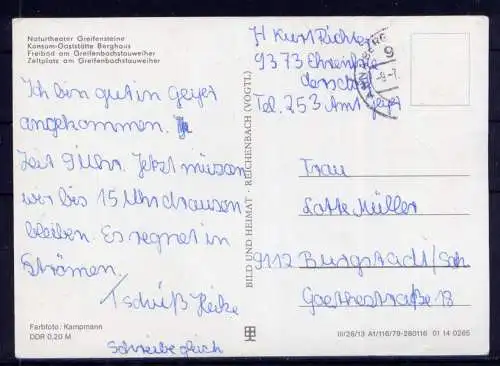 Naturtheater Greifensteine
Konsum-Gaststätte Berghaus
Freibad am Greifenbachstauweiher
Zeltplatz am Greifenbachstauweiher
Ich bin gut in Geyer
angekommen.
Zeit 9 Uhr. Jetzt müssen
wir bis 15 Uhr draussen
bleiben. Es regnet in
Strömen.
Tschüß Heike
Schreibe gleich
Farbfoto: Kampmann
DDR 0,20 M
BILD UND HEIMAT · REICHENBACH (VOGTL)
H Kurt Richter
9373 Ehrenfrie
dersdorf
Tel. 253 Amt Geyer
9
Frau
Lotte Müller
9112 Burgstädt/Sach
Goethestraße 18
III/26/13 A1/116/79-280116 01 14 0265